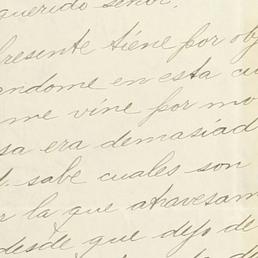 querido señor.
presente tiene por obj
endome en esta cu
me vine por mo
sa era demasiad
sabe cuales son
la que atravesam
desde que dejo de